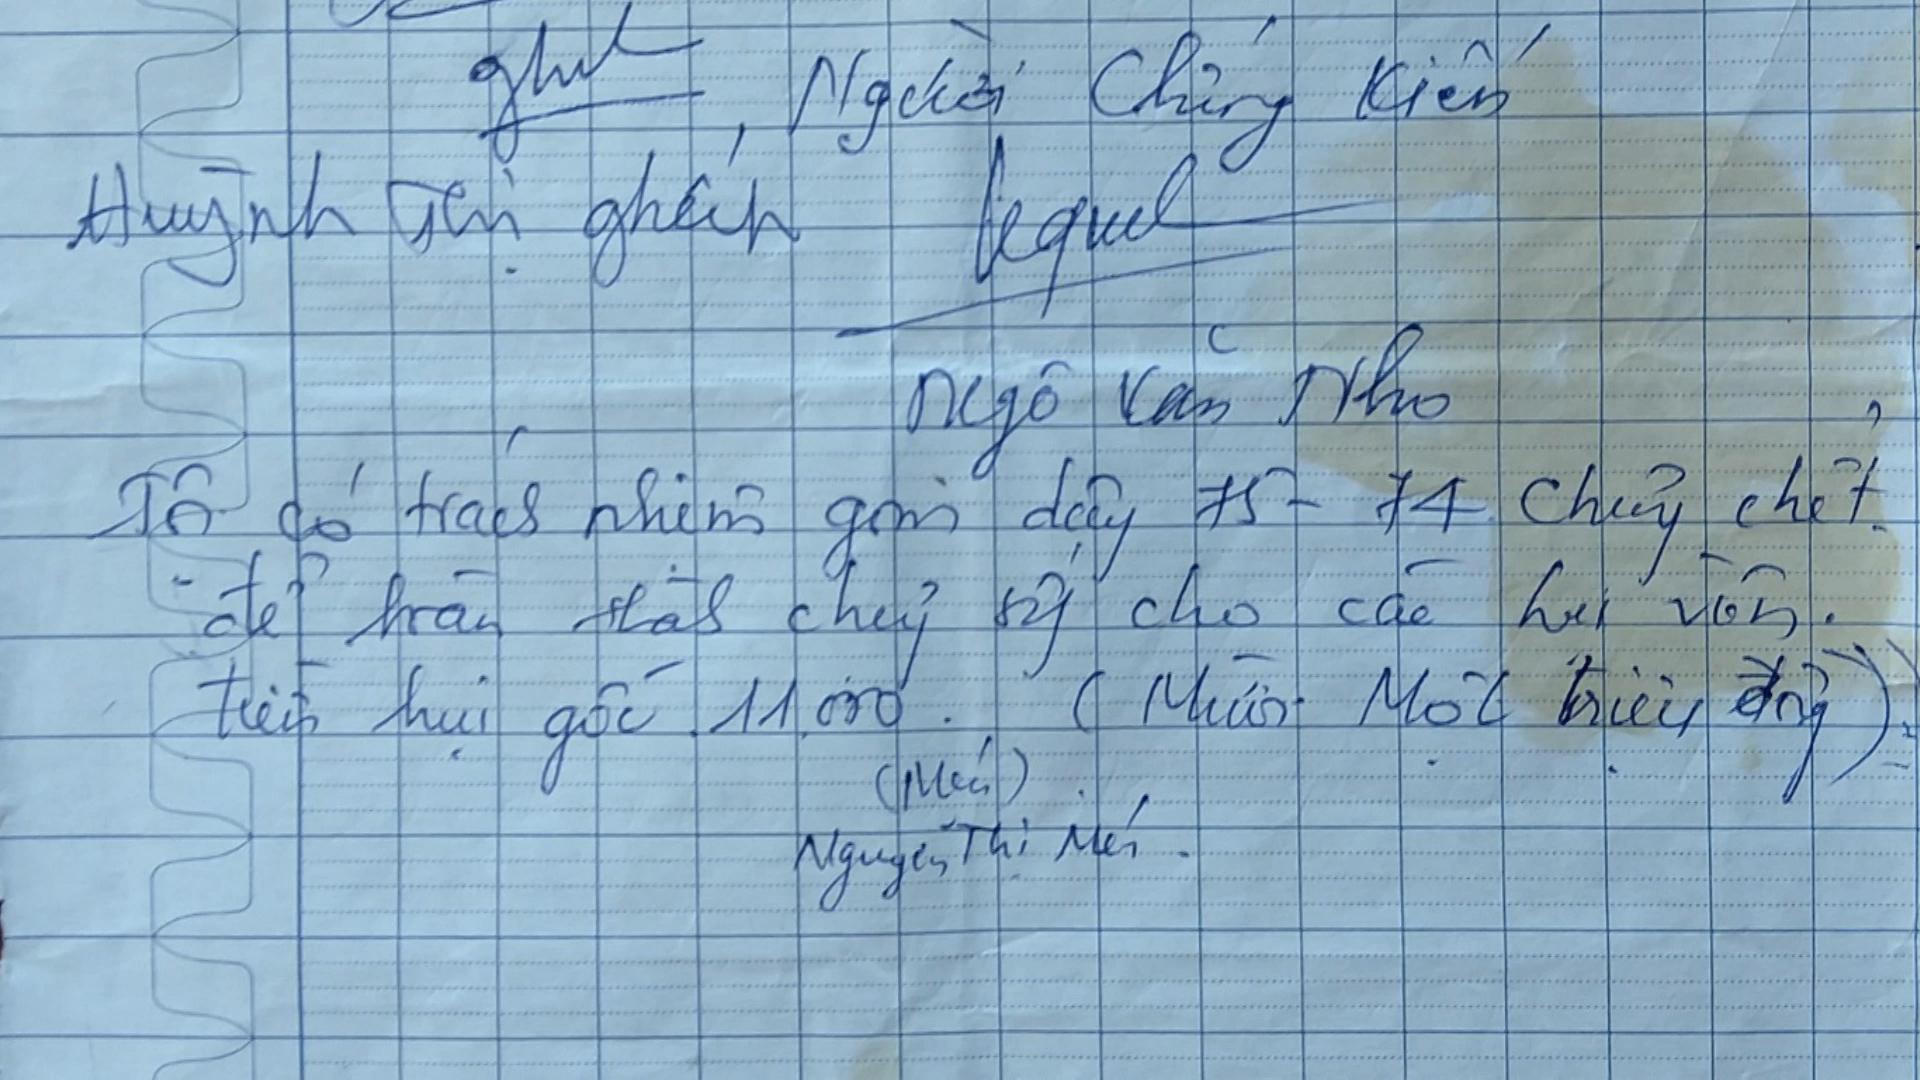 Người Chứng Kiến
Huỳnh Thị ghếch
Ngô Văn Nho
Tô có trách nhiêm gom dây 75 - 74 Chủy chết.
để hoàn chủy cho các hụi vôn.
tiền hụi gốc 11.000. (Mười Một triệu đồng)
(Mến)
Nguyễn Thị Mến.